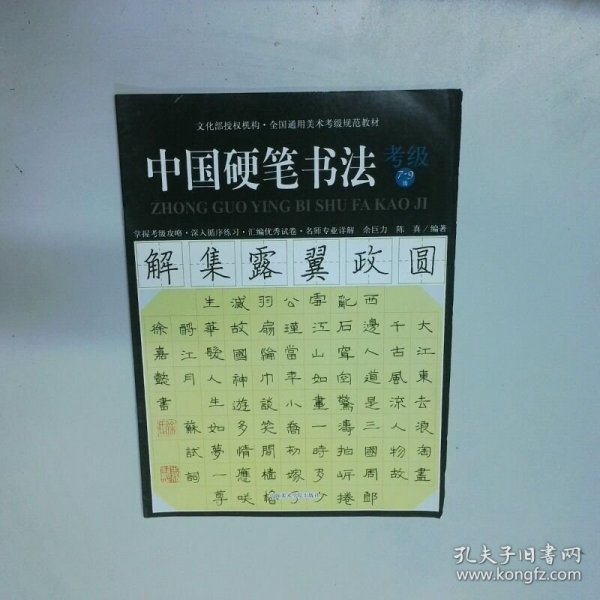 文化部授权机构·全国通用美术考级规范教材
中国硬笔书法
考级
7-9
级
ZHONG GUO YING BI SHU FA KAO JI
掌握考级攻略·深入循序练习·汇编优秀试卷·名师专业详解 余巨力 陈真/编著
解集露翼政圆
大江東去浪淘盡
千古風流人物故
西邊人道是三國周郎
亂石穿空驚濤拍岸捲
雪江山如畫一時多少
公瑾當年小喬初嫁了
羽扇綸巾談笑間檣櫓
減故國神遊多情應咲
生華髮人生如夢一尊
酹江月 蘇試詞
徐嘉懿書
孔夫子旧书网
www.kongfz.com